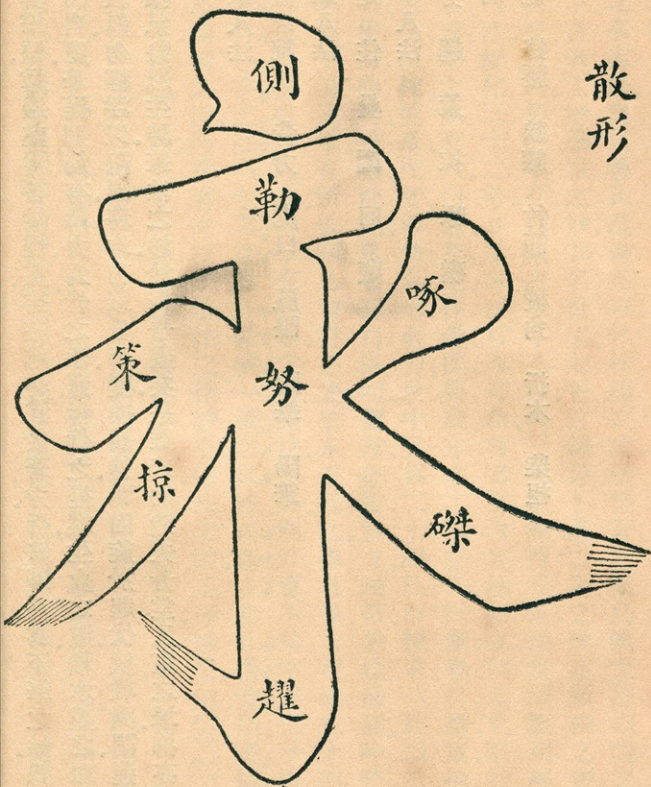 散形
側
勒
啄
策
努
掠
磔
趯